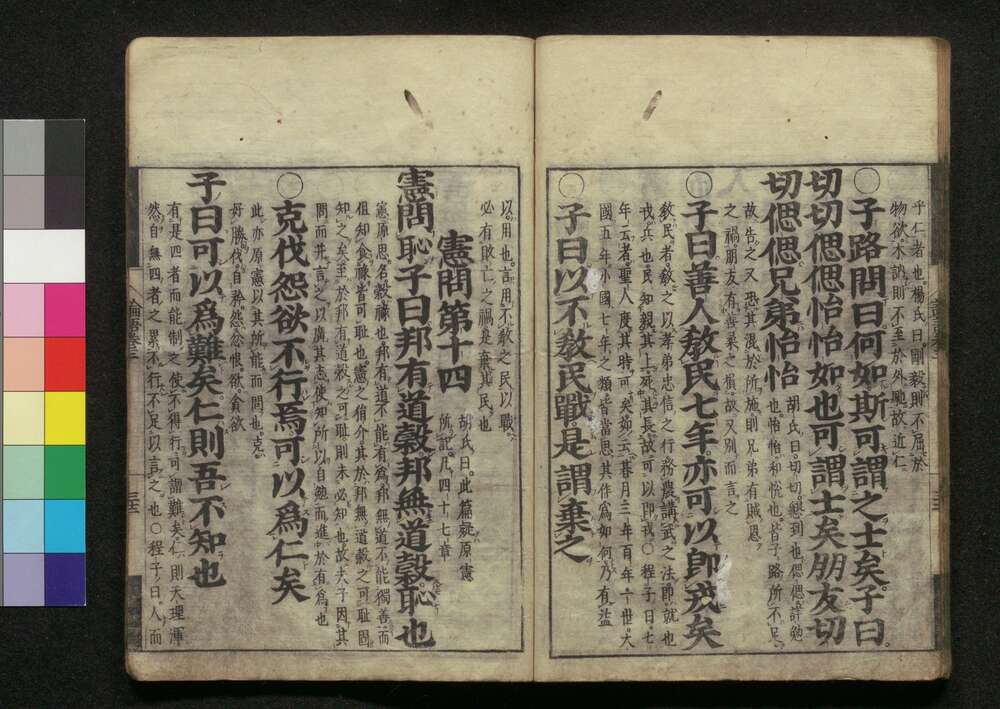 乎仁者也楊氏曰剛毅則不屈於
物欲木訥則不至於外馳故近仁
○子路問曰何如斯可謂之士矣子曰
切切偲偲怡怡如也可謂士矣朋友切
切偲偲兄弟怡怡胡氏曰切切懇到也偲偲詳勉
也怡怡和悅也皆子路所不足
故告之又恐其混於所施則兄弟有賊恩
之禍朋友有善柔之損故又別而言之
○子曰善人敎民七年亦可以卽戎矣
敎民者敎之以孝弟忠信之行務農講武之法卽就也
戎兵也民知親其上死其長故可以卽戎○程子曰七
年云者聖人度其時可矣如云朞月三年百年一世大
國五年小國七年之類皆當思其作爲如何乃有益
○子曰以不敎民戰是謂棄之
以用也言用不敎之民以戰
必有敗亡之禍是棄其民也
憲問第十四胡氏曰此篇疑原憲
所記凡四十七章
憲問恥子曰邦有道穀邦無道穀恥也
憲原思名穀祿也邦有道不能有爲邦無道不能獨善而
但知食祿皆可恥也憲之狷介其於邦無道穀之可恥固
知之矣至於邦有道穀之可恥則未必知也故夫子因其
問而幷言之以廣其志使知所以自勉而進於有爲也
○克伐怨欲不行焉可以爲仁矣
此亦原憲以其所能而問也克
好勝伐自矜怨忿恨欲貪欲
子曰可以爲難矣仁則吾不知也
有是四者而能制之使不得行可謂難矣仁則天理渾
然自無四者之累不行不足以言之也○程子曰人而
論語卷三
三十三